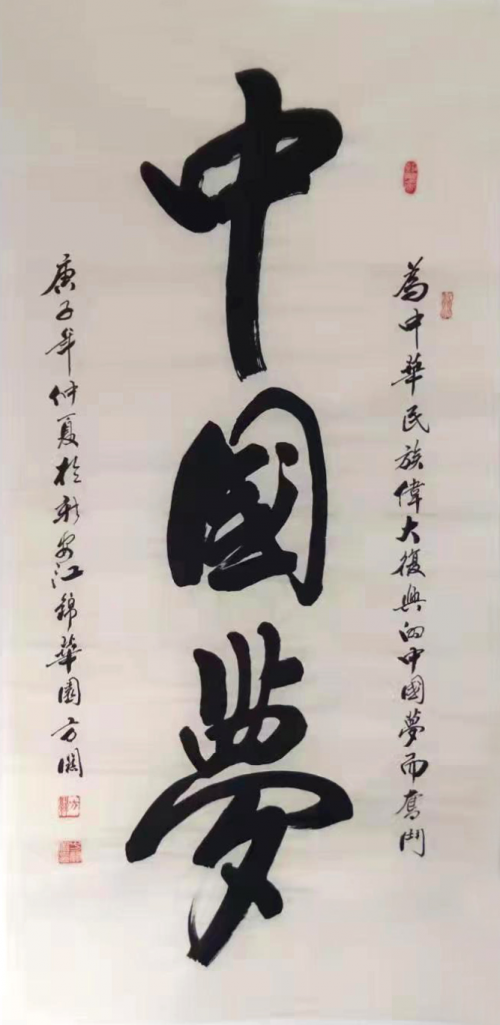 中國夢
為中華民族偉大復興的中國夢而奮鬥
庚子年仲夏於新安江錦華園方闖